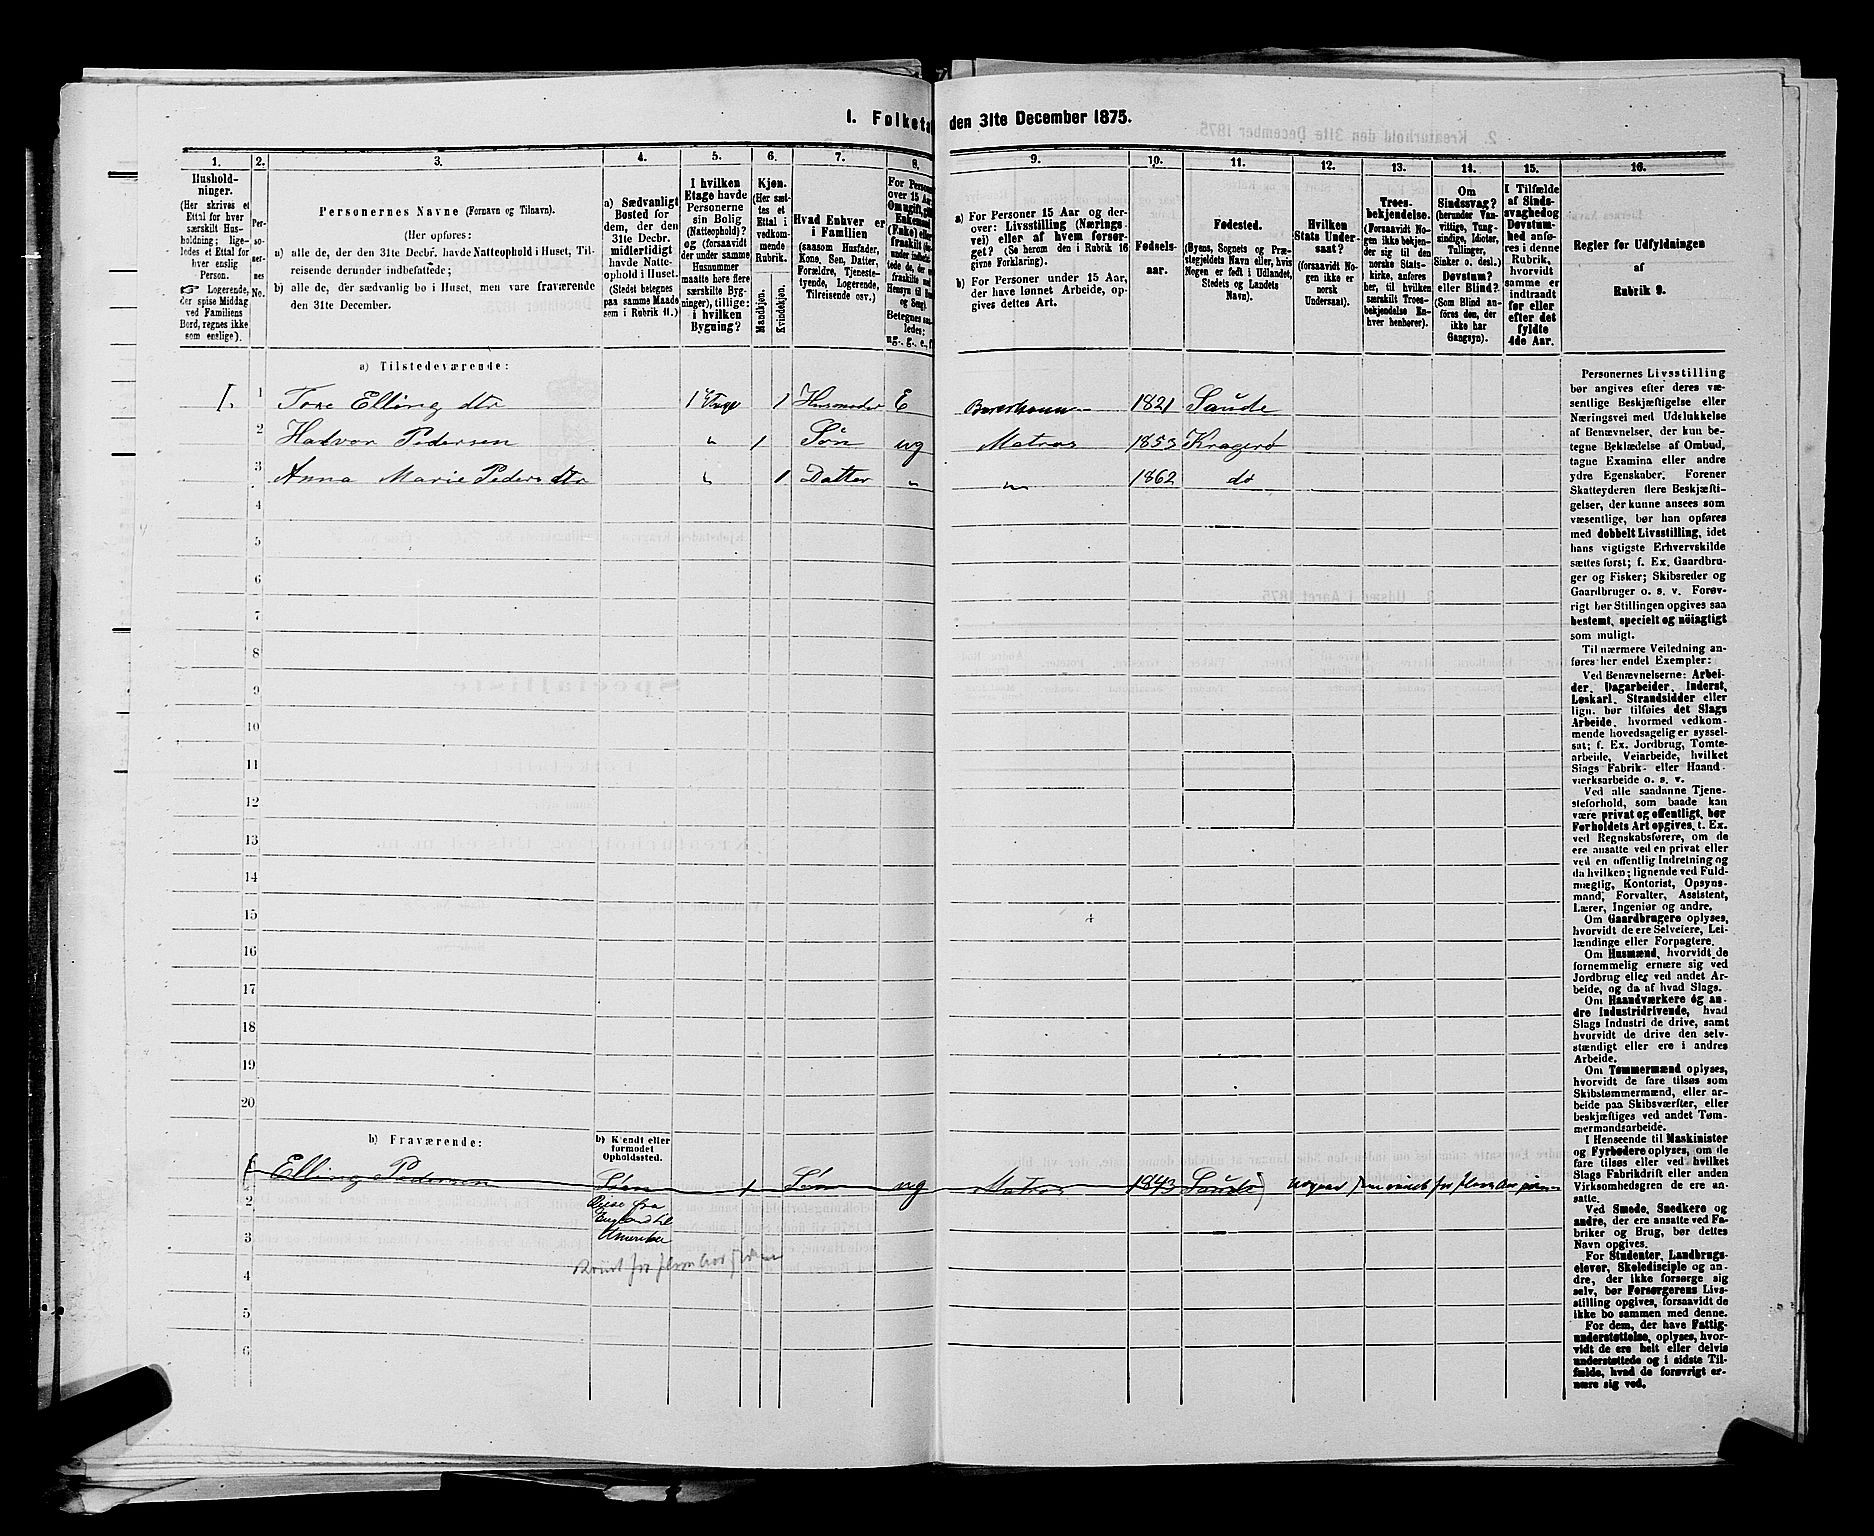 1. Folketæ den 31te December 1875.
1. 2. 3. 4. 5. 6. 7. 8. 9. 10. 11. 12. 13. 14. 15. 16.
Hushold-
ninger.
(Her skrives et
Ettal for hver
særskilt Hus-
holdning; lige-
ledes et Ettal for
hver enslig
Person.
☞ Logerende,
der spise Middag
ved Familiens
Bord, regnes ikke
som enslige).
Per-
so-
ner-
nes
No.
Personernes Navne (Fornavn og Tilnavn).
(Her opføres:
a) alle de, der den 31te Decbr. havde Natteophold i Huset, Til-
reisende derunder indbefattede;
b) alle de, der sædvanlig bo i Huset, men vare fraværende
den 31te December.
a) Sædvanligt
Bosted for
dem, der den
31te Decbr.
midlertidigt
havde Natte-
ophold i Huset.
(Stedet betegnes
paa samme Maade
som i Rubrik 11.)
I hvilken
Etage havde
Personerne
sin Bolig
(Natteophold)?
og (forsaavidt
der under samme
Husnummer
maatte høre flere
særskilte Byg-
ninger), tillige:
i hvilken
Bygning?
Kjøn.
(Her sæt-
tes et
Ettal i
vedkom-
mende
Rubrik.
Mandkjøn.
Kvindekjøn.
Hvad Enhver er
i Familien
(saasom Husfader,
Kone, Søn, Datter,
Forældre, Tjeneste-
tyende, Logerende,
Tilreisende osv.)
For Person
over 15 Aar
Om ugift, gift
Enkemand
(Enke) eller
fraskilt
Betegnes saa-
ledes:
ug., g., e., f.
a) For Personer 15 Aar og der-
over: Livsstilling (Nærings-
vei) eller af hvem forsør-
get? (Se herom den i Rubrik 16
givne Forklaring).
b) For Personer under 15 Aar,
der have lønnet Arbeide, op-
gives dettes Art.
Fødsels-
aar.
Fødested.
(Byens, Sognets og Præ-
stegjeldets Navn eller, hvis
Nogen er født i Udlandet,
Stedets og Landets
Navn).
Hvilken
Stats Under-
saat?
(forsaavidt No-
gen ikke er
norsk
Undersaat).
Troes-
bekjendelse.
(Forsaavidt No-
gen ikke bekjen-
der sig til den
norske Stats-
kirke, anføres
her, til hvilken
særskilt Troes-
bekjendelse En-
hver henhører).
Om
Sindssvag?
(herunder Van-
vittige, Tung-
sindige, Idioter,
Tullinger,
Sinker o. desl.)
Døvstum?
eller Blind?
(Som Blind an-
føres den, der
ikke har
Gangsyn).
I Tilfælde
af Sinds-
svaghed og
Døvstum-
hed anfø-
res i denne
Rubrik,
hvorvidt
samme er
indtraadt
før eller
efter det
fyldte
4de Aar.
Regler for Udfyldningen
af
Rubrik 9.
a) Tilstedeværende:
I. 1 Tore Elling dtr 1 Etage 1 Husmoder E 1821 Saude
2 Halvor Pedersen " 1 Søn ug Matros 1853 Kragerø
3 Anna Marie Peders dtr " 1 Datter " " 1862 do
4
5
6
7
8
9
10
11
12
13
14
15
16
17
18
19
20
b) Fraværende:
b) Kjendt eller
formodet
Opholdssted.
1 Elling Pedersen 1 Søn ug Matros 1843 Saude
2 Reise fra
England til
3 Amerika
4
5
6
Personernes Livsstilling
bør angives efter deres væ-
sentlige Beskjæftigelse eller
Næringsvei med Udelukkelse
af Benævnelser, der kun be-
tegne Beklædelse af Ombud,
tagne Examina eller andre
ydre Egenskaber. Forener
Skatteyderen flere Beskjæfti-
gelser, der kunne ansees som
væsentlige, bør han opføres
med dobbelt Livsstilling, idet
hans vigtigste Erhvervskilde
sættes først; f. Ex. Gaardbru-
ger og Fisker; Skibsreder og
Gaardbruger o. s. v. Forøv-
rigt bør Stillingen opgives saa
bestemt, specielt og nöiagtigt
som muligt.
Til nærmere Veiledning an-
føres her endel Exempler:
Ved Benævnelserne: Arbei-
der, Dagarbeider, Inderst,
Løskarl, Strandsidder eller
lign. bør tilføies det Slags
Arbeide, hvormed vedkom-
mende hovedsagelig er syssel-
sat; f. Ex. Jordbrug, Tomte-
arbeide, Veiarbeide, hvilket
Slags Fabrik- eller Haand-
værksarbeide o. s. v.
Ved alle saadanne Tjene-
steforhold, som baade kan
være privat og offentligt, bør
Forholdets Art opgives, t. Ex.
ved Regnskabsførere, om de
ere ansatte ved en privat eller
ved en offentlig Indretning og
da hvilken; lignende ved Fuld-
mægtig, Kontorist, Opsyns-
mand, Forvalter, Assistent,
Lærer, Ingeniør og andre.
Om Gaardbrugere oplyses,
hvorvidt de ere Selveiere, Lei-
lændinge eller Forpagtere.
Om Husmænd, hvorvidt de
fornemmelig ernære sig ved
Jordbrug eller ved andet Ar-
beide, og da af hvad Slags.
Om Haandværkere og an-
dre Industridrivende, hvad
Slags Industri de drive, samt
hvorvidt de drive den selv-
stændigt eller ere i andres
Arbeide.
Om Tømmermænd oplyses,
hvorvidt de fare tilsøs som
Skibstømmermænd, eller ar-
beide paa Skibsværfter, eller
beskjæftiges ved andet Tøm-
mermandsarbeide.
I Henseende til Maskinister
og Fyrbødere oplyses, om de
fare tilsøs eller ved hvilket
Slags Fabrikdrift eller anden
Virksomhedsgren de ere an-
satte.
Ved Smede, Snedkere og
andre, der ere ansatte ved Fa-
briker og Brug, bør dettes
Navn opgives.
For Studenter, Landbrugs-
elever, Skoledisciple og an-
dre, der ikke forsørge sig
selv, bør Forsørgerens Livs-
stilling opgives, forsaavidt de
ikke bo sammen med denne.
For dem, der have Fattig-
understøttelse, oplyses, hvor-
vidt de ere helt eller delvis
understøttede og i sidste Til-
fælde, hvad de forøvrigt er-
nære sig ved.